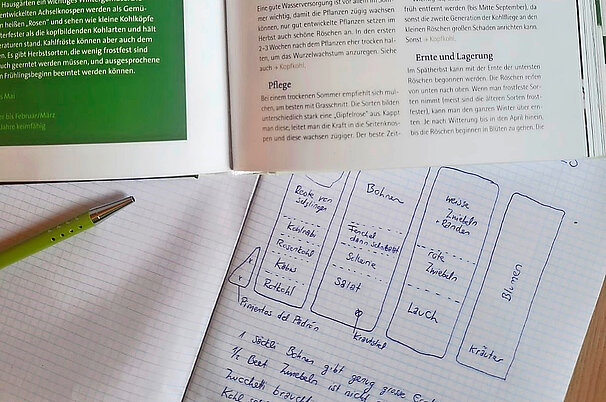 Hausgärten ein wichtiges
entwickelten Achselknospen werden als Gemü-
n heißen „Rosen" und sehen wie kleine Kohlköpfe
terfester als die kopfbildenden Kohlarten und hält
eraturen stand. Kahlfröste können aber auch dem
. Es gibt Herbstsorten, die wenig frostfest sind
uch geerntet werden müssen, und ausgesprochene
n Frühlingsbeginn beerntet werden können.
s Mai
er bis Februar/März
Jahre keimfähig
Eine gute Wasserversorgung ist vor allem im Som-
mer wichtig, damit die Pflanzen zügig wachsen
können, nur gut entwickelte Pflanzen setzen im
Herbst auch schöne Röschen an. In den ersten
2–3 Wochen nach dem Pflanzen eher trocken hal-
ten, um das Wurzelwachstum anzuregen. Siehe
auch → Kopfkohl.
Pflege
Bei einem trockenen Sommer empfiehlt sich mul-
chen, am besten mit Grasschnitt. Die Sorten bilden
unterschiedlich stark eine „Gipfelrose" aus. Kappt
man diese, leitet man die Kraft in die Seitenknos-
pen und diese wachsen zügiger. Der beste Zeit-
früh entfernt werden (bis Mitte September), da
sonst die zweite Generation der Kohlfliege an den
kleinen Röschen großen Schaden anrichten kann.
Sonst → Kopfkohl.
Ernte und Lagerung
Im Spätherbst kann mit der Ernte der untersten
Röschen begonnen werden. Die Röschen reifen
von unten nach oben. Wenn man frostfeste Sor-
ten nimmt (meist sind die älteren Sorten frost-
fester), kann man den ganzen Winter über ern-
ten. Je nach Witterung bis in den April hinein,
bis die Röschen beginnen in Blüten zu gehen. Die
Kohlrabi
Rosenkohl
Kabis
Rotkohl
Pimentos del Padrón
Bohnen
Fenchel
dann Schnittsalat
Sellerie
Salat
Krautstiel
weisse
Zwiebeln
+ Randen
rote
Zwiebeln
Lauch
Blumen
Kräuter
1 Säckli Bohnen gibt genug grosse
1/2 Beet Zwiebeln ist nicht
Zucchetti braucht
Kohl